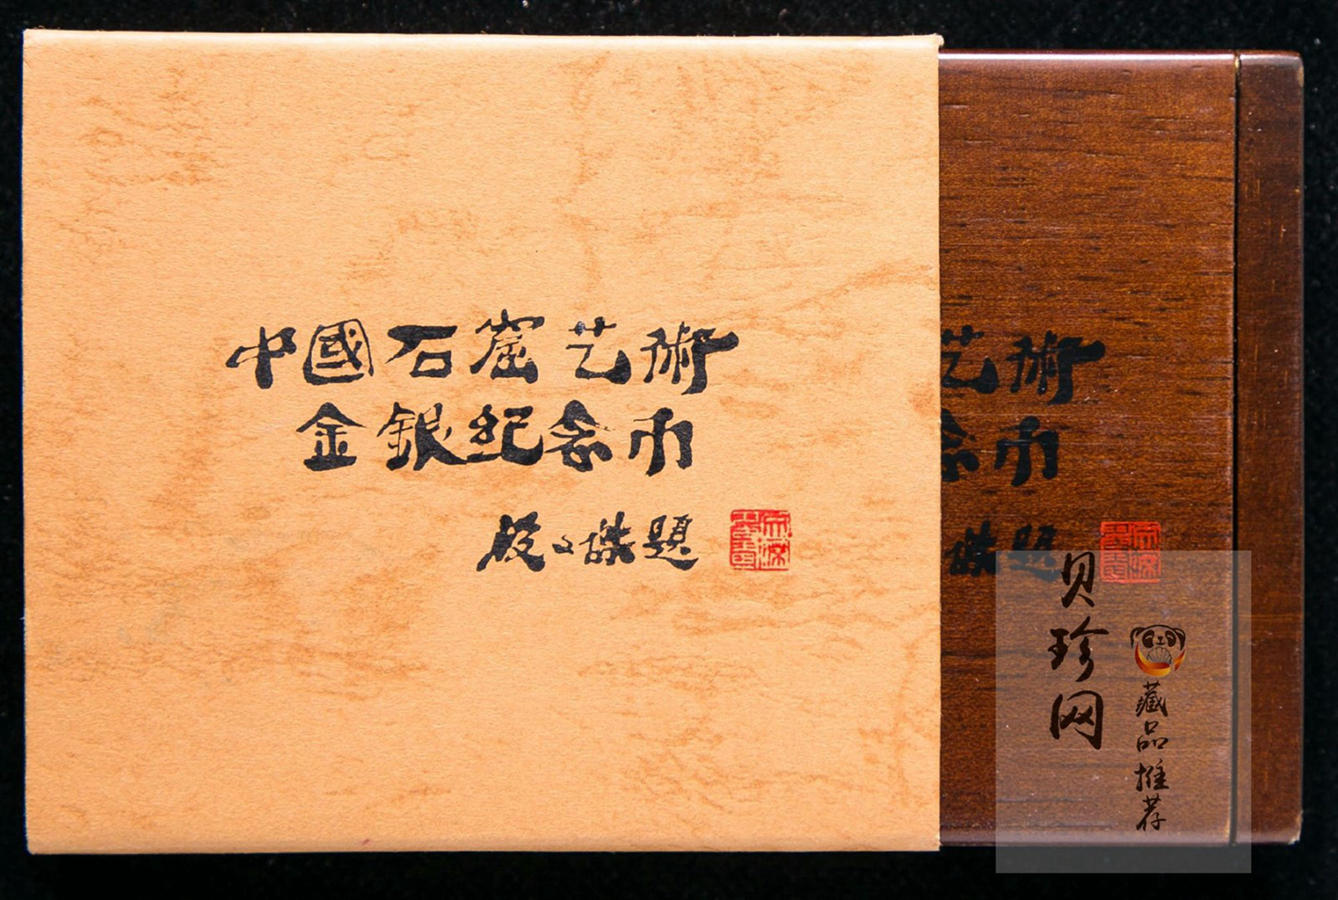 中國石窟艺術
金銀纪念币
段文傑題
艺術
念币
傑題
贝珍网
藏品推荐